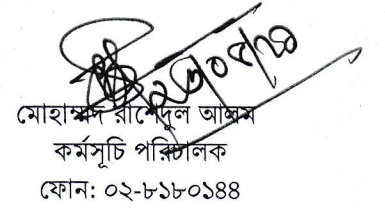 মোহাম্মদ রাশেদুল আলম
কর্মসূচি পরিচালক
ফোন: ০২-৮১৮০১৪৪